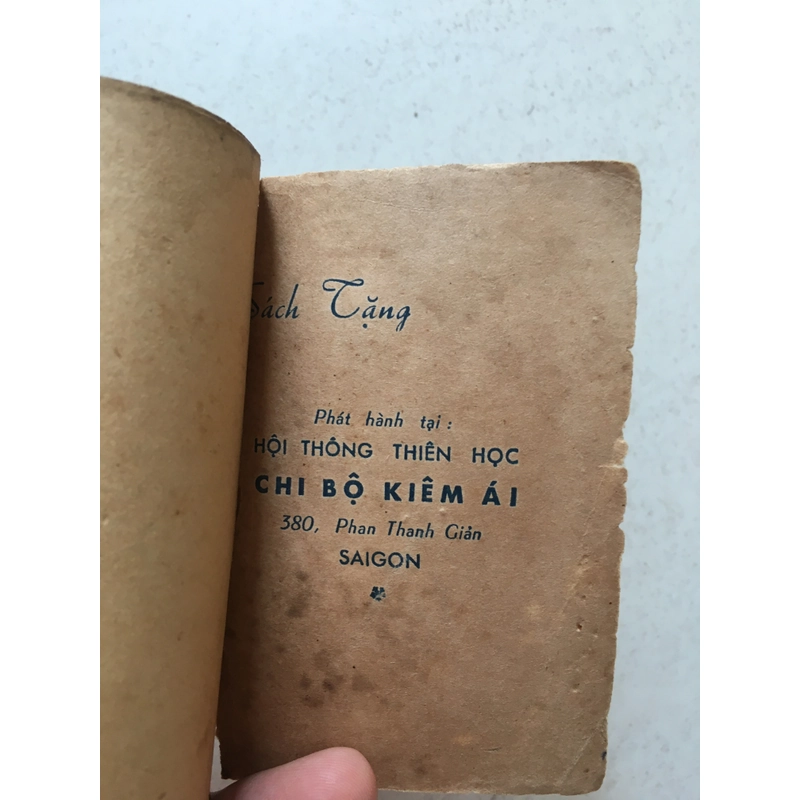 Sách Tặng
Phát hành tại :
HỘI THÔNG THIÊN HỌC
CHI BỘ KIÊM ÁI
380, Phan Thanh Giản
SAIGON